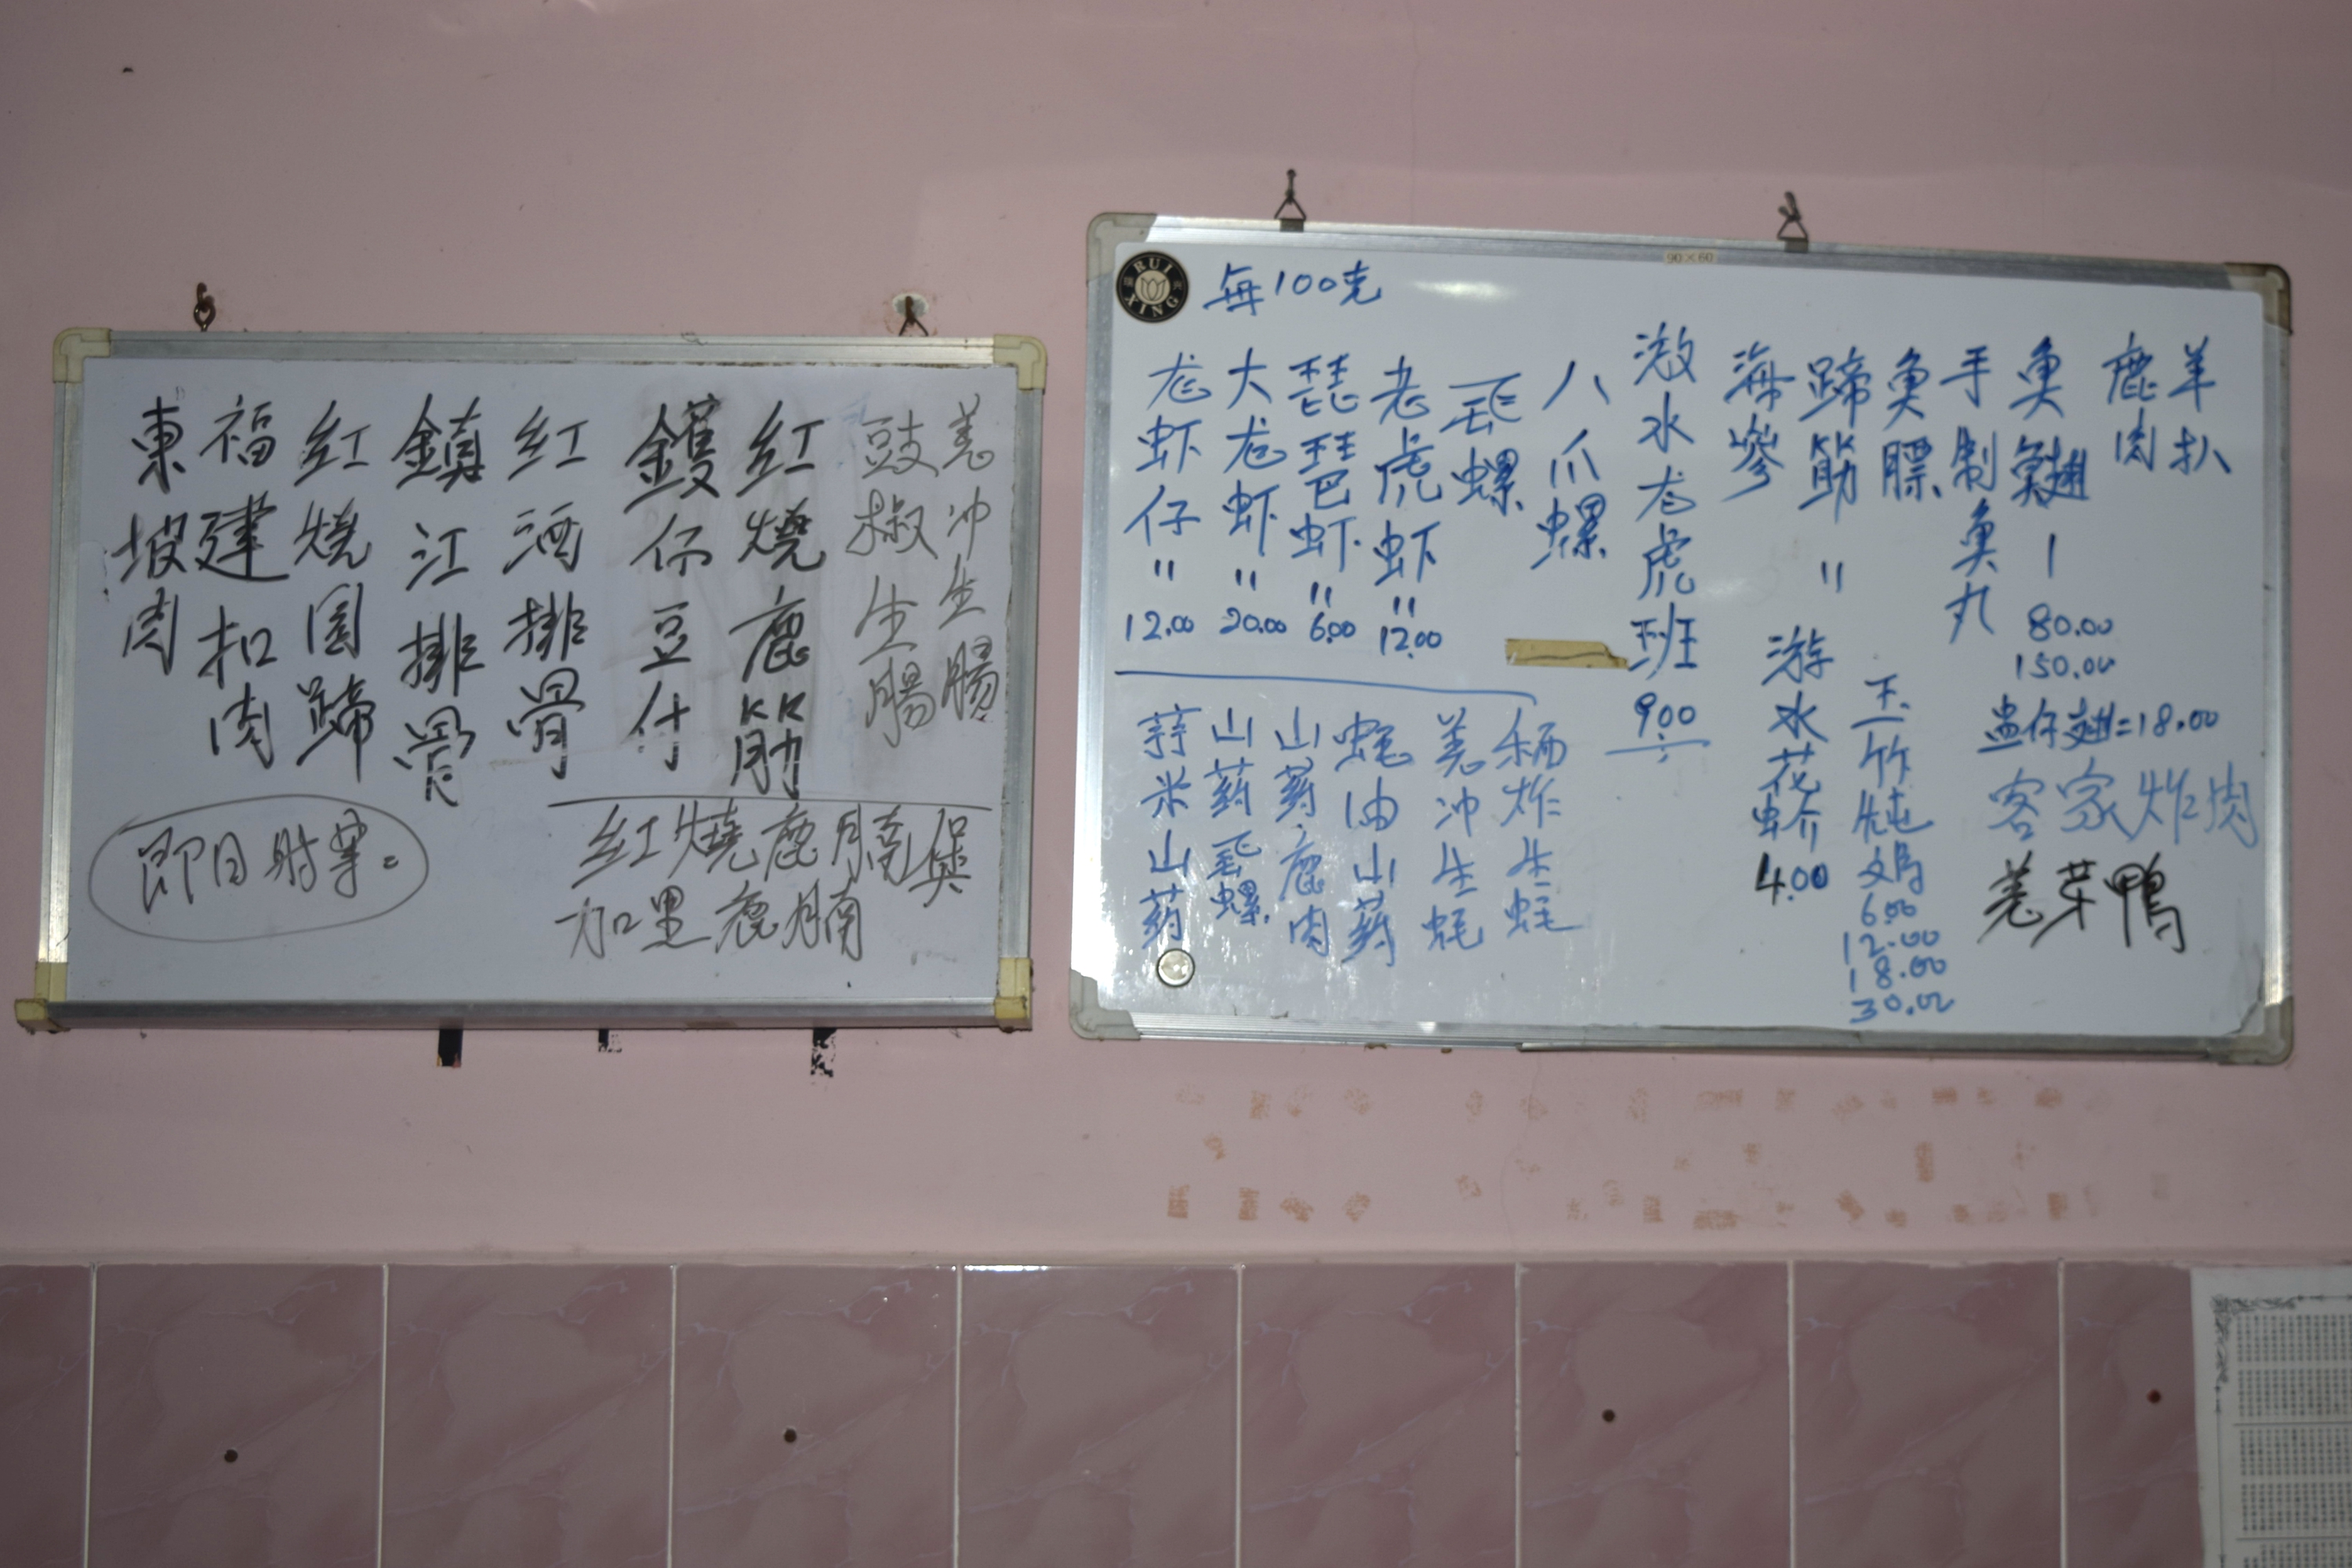 東坡肉
福建扣肉
紅燒圓蹄
鎮江排骨
紅酒排骨
鑊仔豆付
紅燒鹿筋
豉椒生腸
姜冲生腸
即日
紅燒鹿腩煲
加里鹿腩
RUI
XING
90×60
每100克
龙虾仔 " 12.00
大龙虾 " 20.00
琵琶虾 " 6.00
老虎虾 " 12.00
螺
八爪螺
水龙虎班 9.00
海參
蹄筋 "
魚膘
手制魚丸
魚翅
80.00
150.00
鹿肉
羊扒
盅仔翅=18.00
蒜米山药
山药螺
山药鹿肉
蚝油山药
姜冲生蚝
炸生蚝
游水花蚧 4.00
玉竹炖
6.00
12.00
18.00
30.00
客家炸肉
姜芽鴨